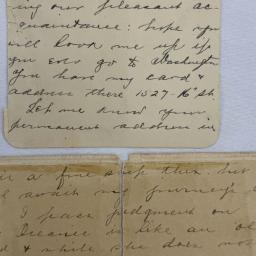 ing our pleasant ac-
quaintance: hope you
will look me up if
you ever go to Washington
You have my card &
address there 1527-16 st.
Let me know your
permanent address in
a fine ship then. but
await my journey's
I pass judgment on
is like an ol
& while she does not